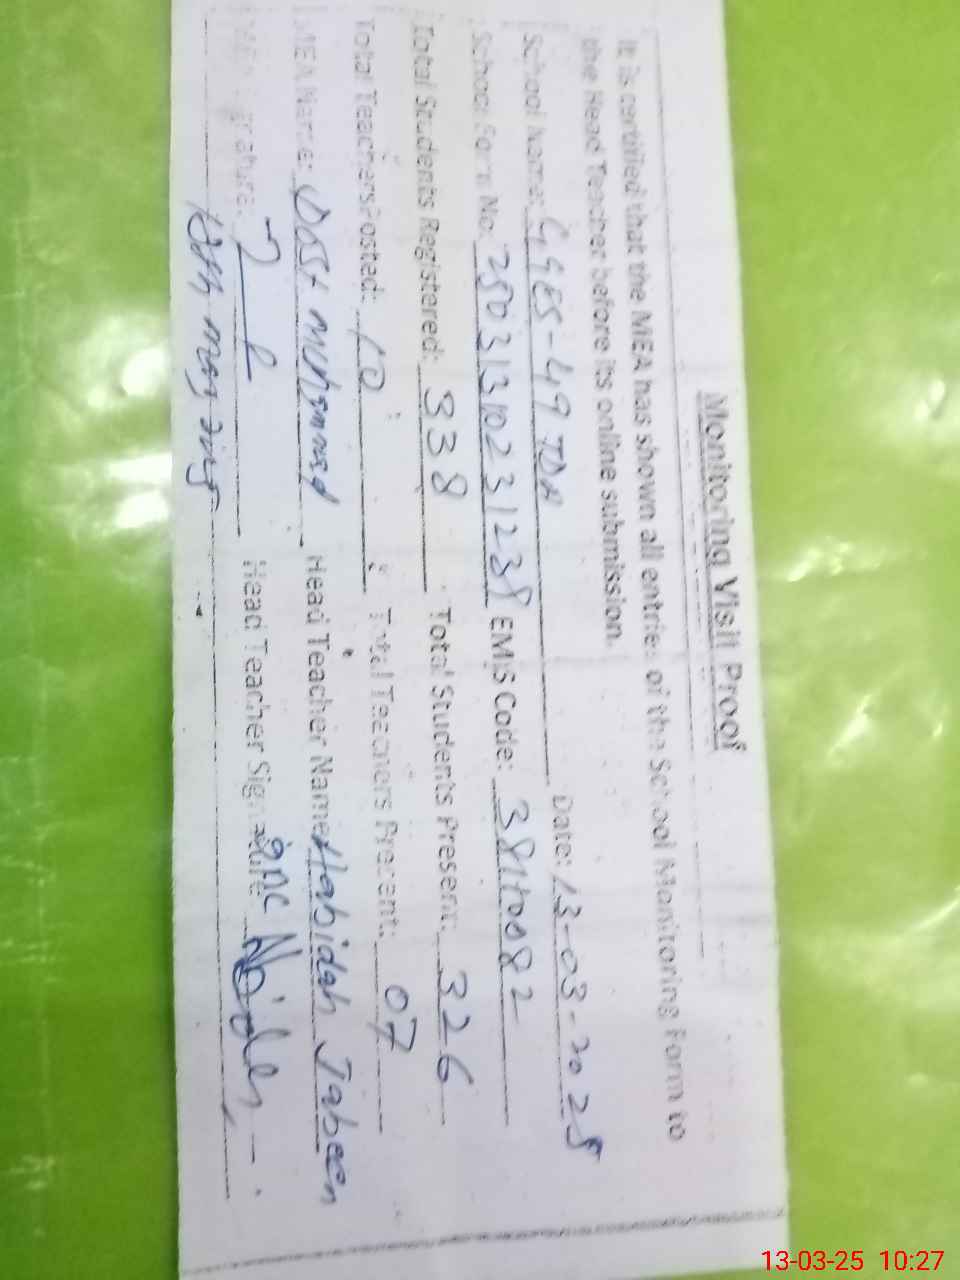 Monitoring Visit Proof
It is certified that the MEA has shown all entries of the School Monitoring Form to
the Head Teacher before its online submission.
School Name: GGES-49 TDA Date: 13-03-2025
School Form No: 25031310231238 EMIS Code:
Total Students Registered: 338 Total Students Present: 326
Total Teachers Posted: 10 Total Teachers Present: 07
MEA Name: Dost Muhammad Head Teacher Name: Habidah Jabeen
MEA Signature: Head Teacher Signature:
13-03-25 10:27